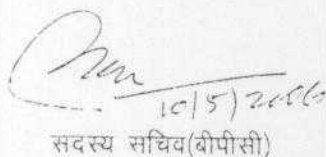 10/5/2006
सदस्य सचिव(बीपीसी)